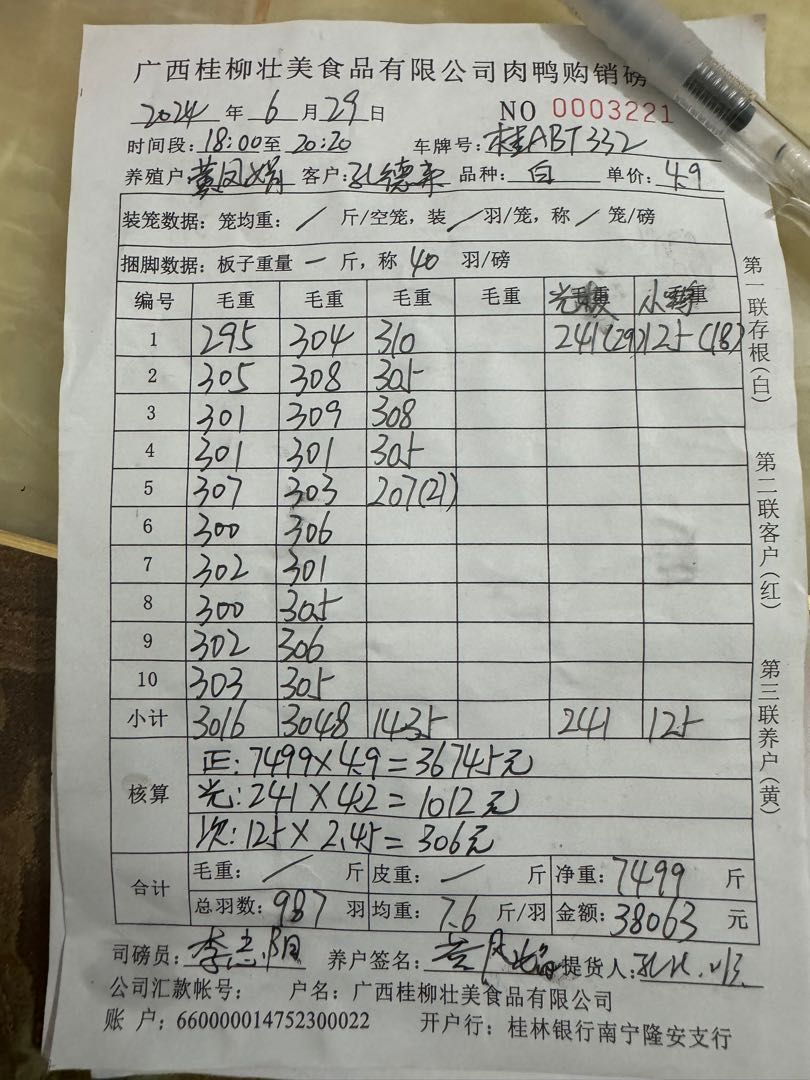 广西桂柳壮美食品有限公司肉鸭购销磅
2024 年 6 月 29 日 NO 0003221
时间段: 18:00至 20:20 车牌号: 桂ABT332
养殖户 黄凤娟 客户: 孔德 品种: 白 单价: 4.9
装笼数据: 笼均重: / 斤/空笼, 装 / 羽/笼, 称 / 笼/磅
捆脚数据: 板子重量 一 斤, 称 40 羽/磅
编号 毛重 毛重 毛重 毛重 毛重 毛重
1 295 304 310 241(29) 125(18)
2 305 308 305
3 301 309 308
4 301 301 305
5 307 303 207(27)
6 300 306
7 302 301
8 300 305
9 302 306
10 303 305
小计 3016 3048 1435 241 125
核算
正: 7499×4.9=36745元
光: 241×4.2=1012元
次: 125×2.45=306元
合计
毛重: / 斤 皮重: / 斤 净重: 7499 斤
总羽数: 987 羽 均重: 7.6 斤/羽 金额: 38063 元
司磅员: 李志阳 养户签名: 黄凤娟 提货人:
公司汇款帐号: 户名: 广西桂柳壮美食品有限公司
账 户: 660000014752300022 开户行: 桂林银行南宁隆安支行
第一联存根(白)
第二联客户(红)
第三联养户(黄)